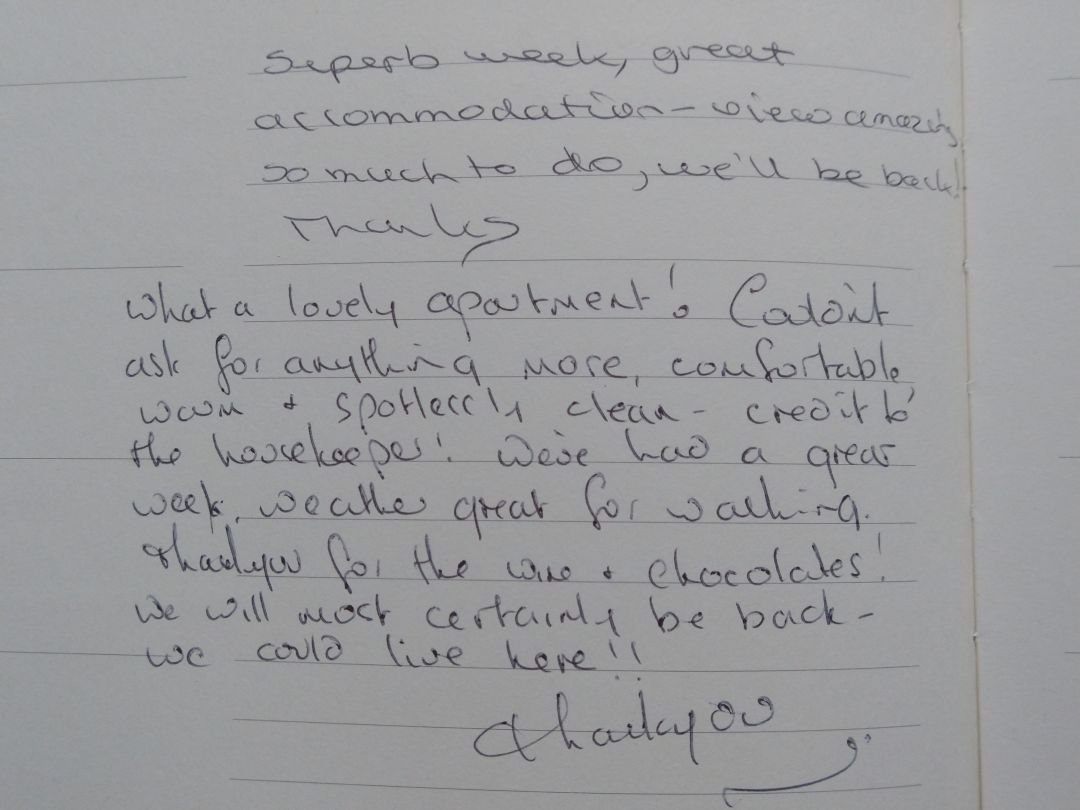 Superb week, great
accommodation - views amazing
so much to do, we'll be back!
Thanks
What a lovely apartment! Couldn't
ask for anything more, comfortable,
warm + spotlessly clean - credit to
the housekeeper! We've had a great
week, weather great for walking.
Thankyou for the wine + chocolates!
We will most certainly be back -
we could live here!!
Thankyou